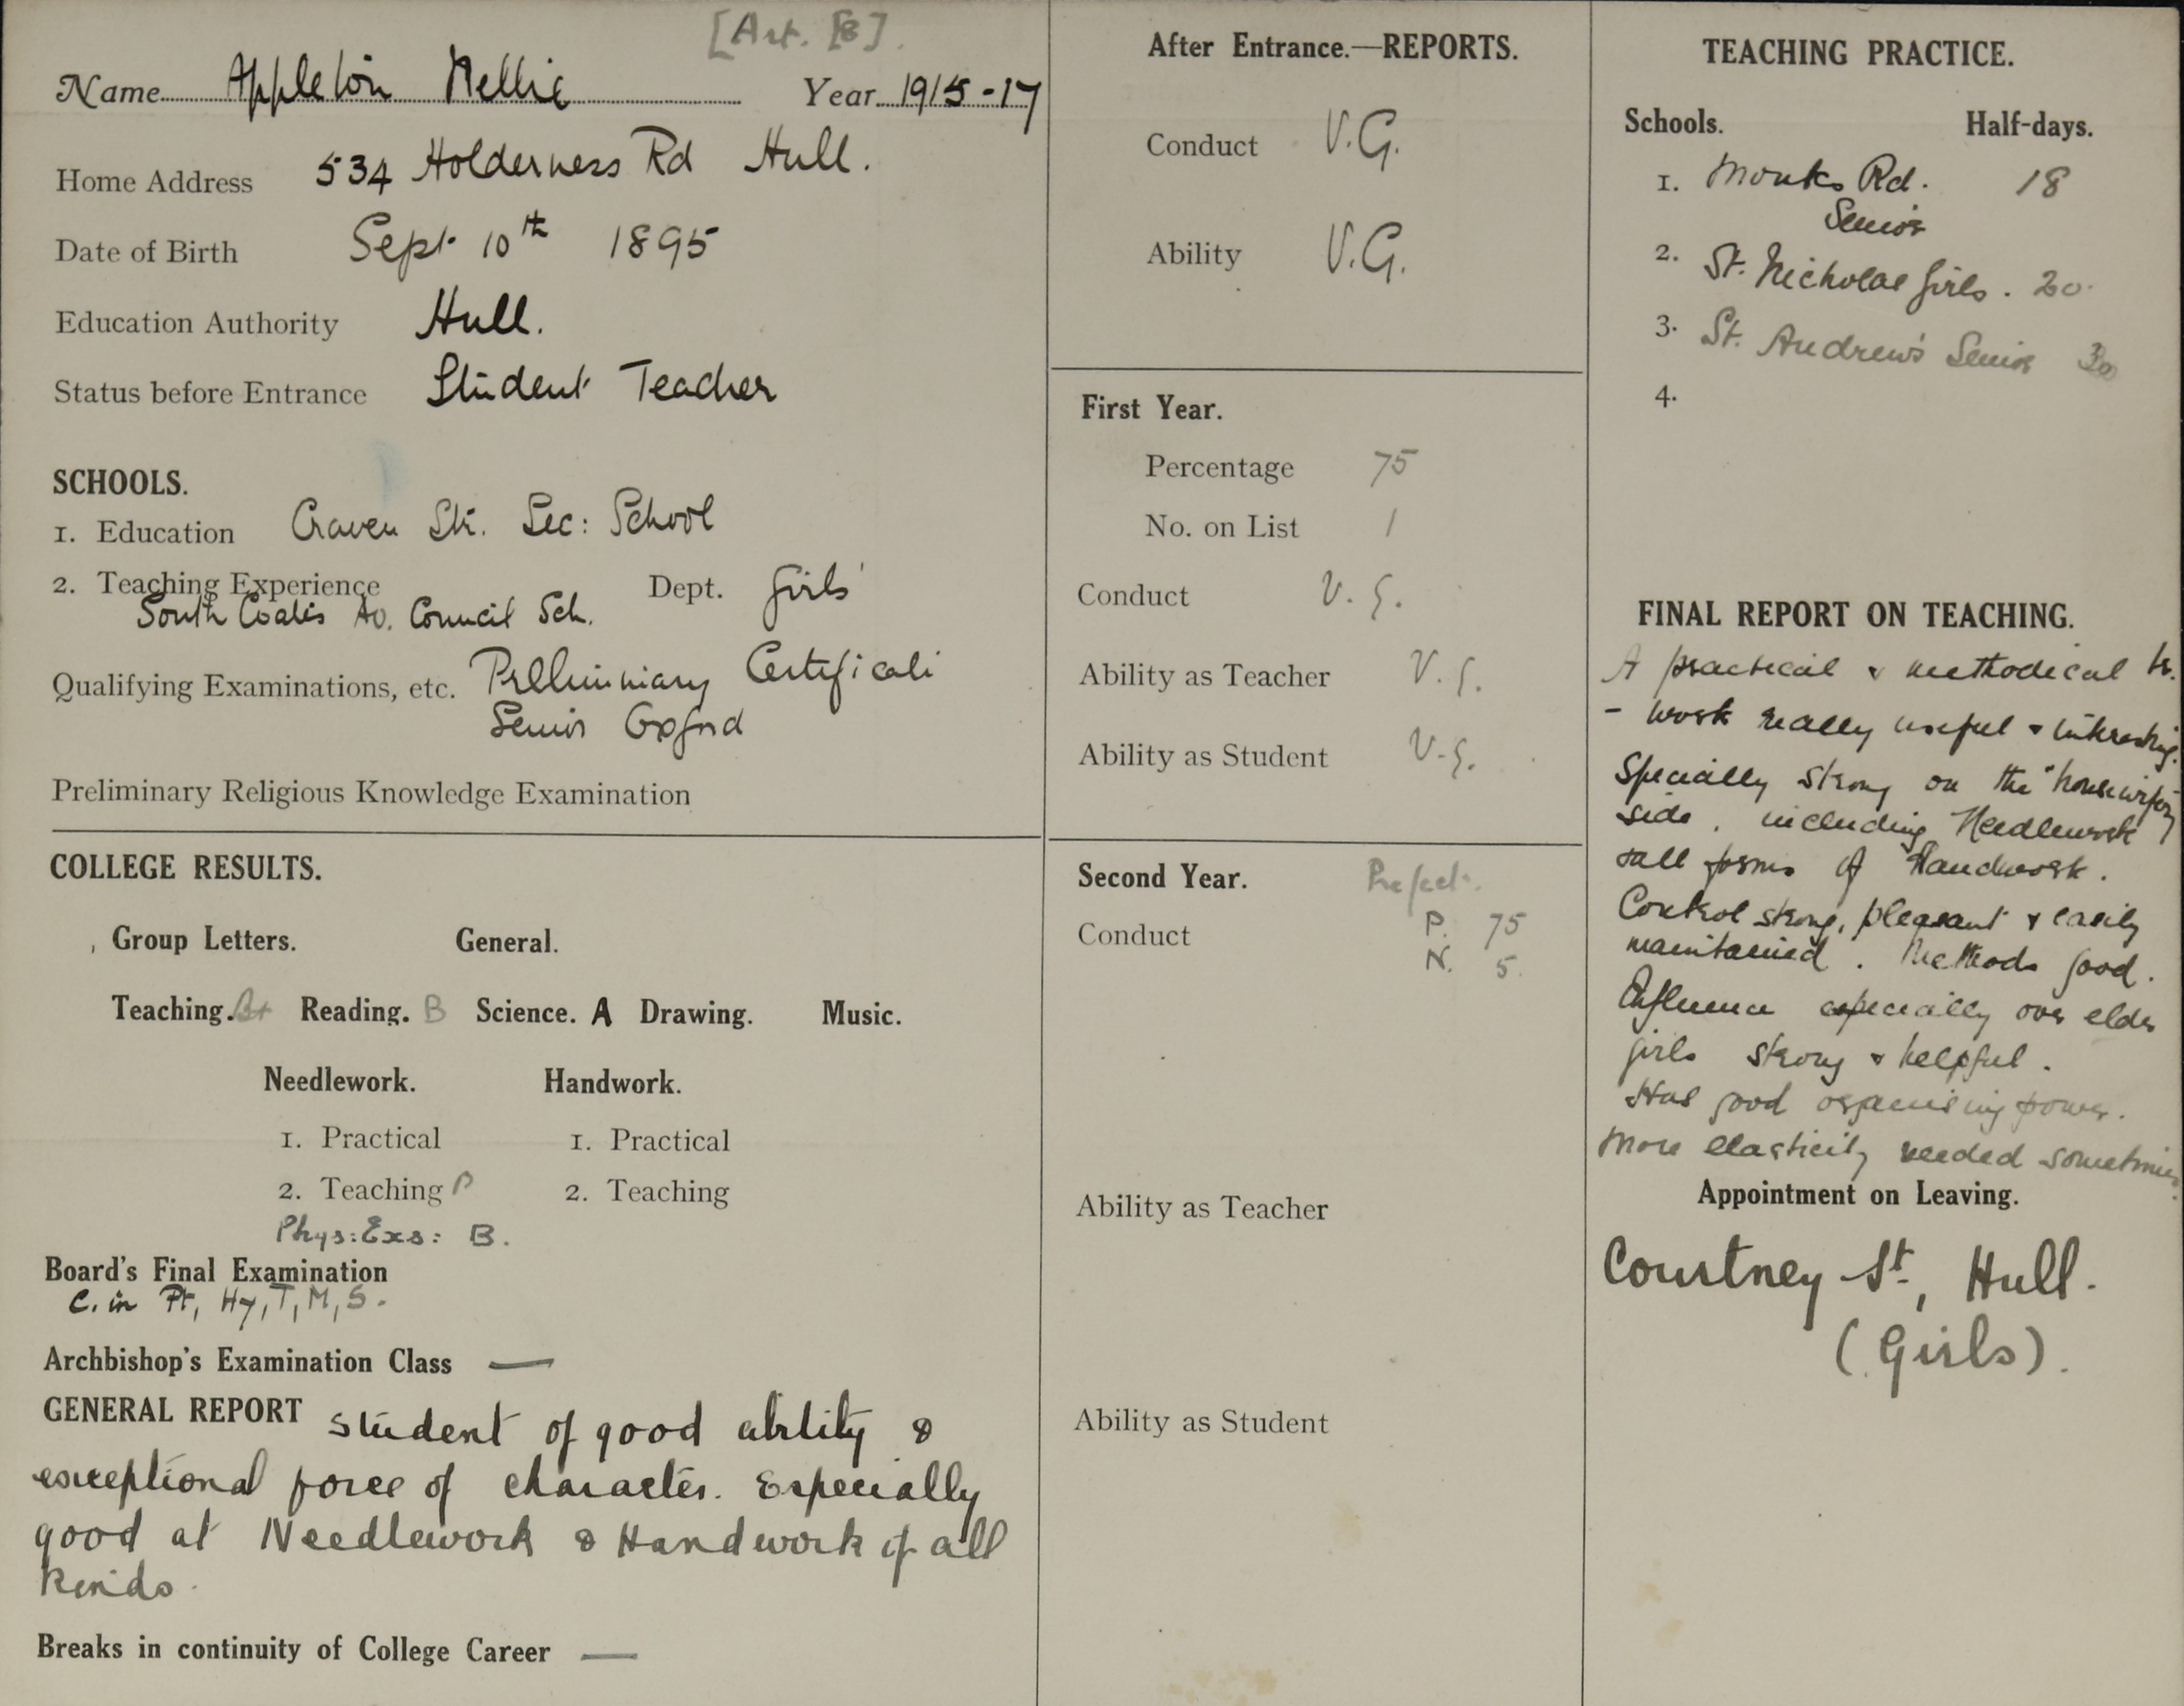 [Art. [8].
Name Appleton Nellie Year 1915-17
Home Address 534 Holderness Rd Hull.
Date of Birth Sept. 10th 1895
Education Authority Hull.
Status before Entrance Student Teacher
SCHOOLS.
1. Education Craven Str. Sec: School
2. Teaching Experience Dept. Girls'
South Coates Av. Council Sch.
Qualifying Examinations, etc. Preliminary Certificate
Senior Oxford
Preliminary Religious Knowledge Examination
COLLEGE RESULTS.
Group Letters. General.
Teaching. B+ Reading. B Science. A Drawing. Music.
Needlework. Handwork.
1. Practical 1. Practical
2. Teaching B 2. Teaching
Phys: Exs: B.
Board's Final Examination
C. in Pr, Hy, T, M, S.
Archbishop's Examination Class —
GENERAL REPORT Student of good ability &
exceptional force of character. Especially
good at Needlework & Handwork of all
kinds.
Breaks in continuity of College Career —
After Entrance.—REPORTS.
Conduct V.G.
Ability V.G.
First Year.
Percentage 75
No. on List 1
Conduct V.G.
Ability as Teacher V.G.
Ability as Student V.G.
Second Year. Prefect.
Conduct P. 75
N. 5.
Ability as Teacher
Ability as Student
TEACHING PRACTICE.
Schools. Half-days.
1. Monks Rd. 18
Senior
2. St. Nicholas Girls. 20.
3. St. Andrew's Senior 30
4.
FINAL REPORT ON TEACHING.
A practical & methodical tr.
- work really useful & interesting.
Specially strong on the "housewifery
side, including Needlework
& all forms of Handwork.
Control strong, pleasant & easily
maintained. Methods good.
Influence especially over elder
girls strong & helpful.
Has good organising power.
More elasticity needed sometimes.
Appointment on Leaving.
Courtney St, Hull.
(Girls).